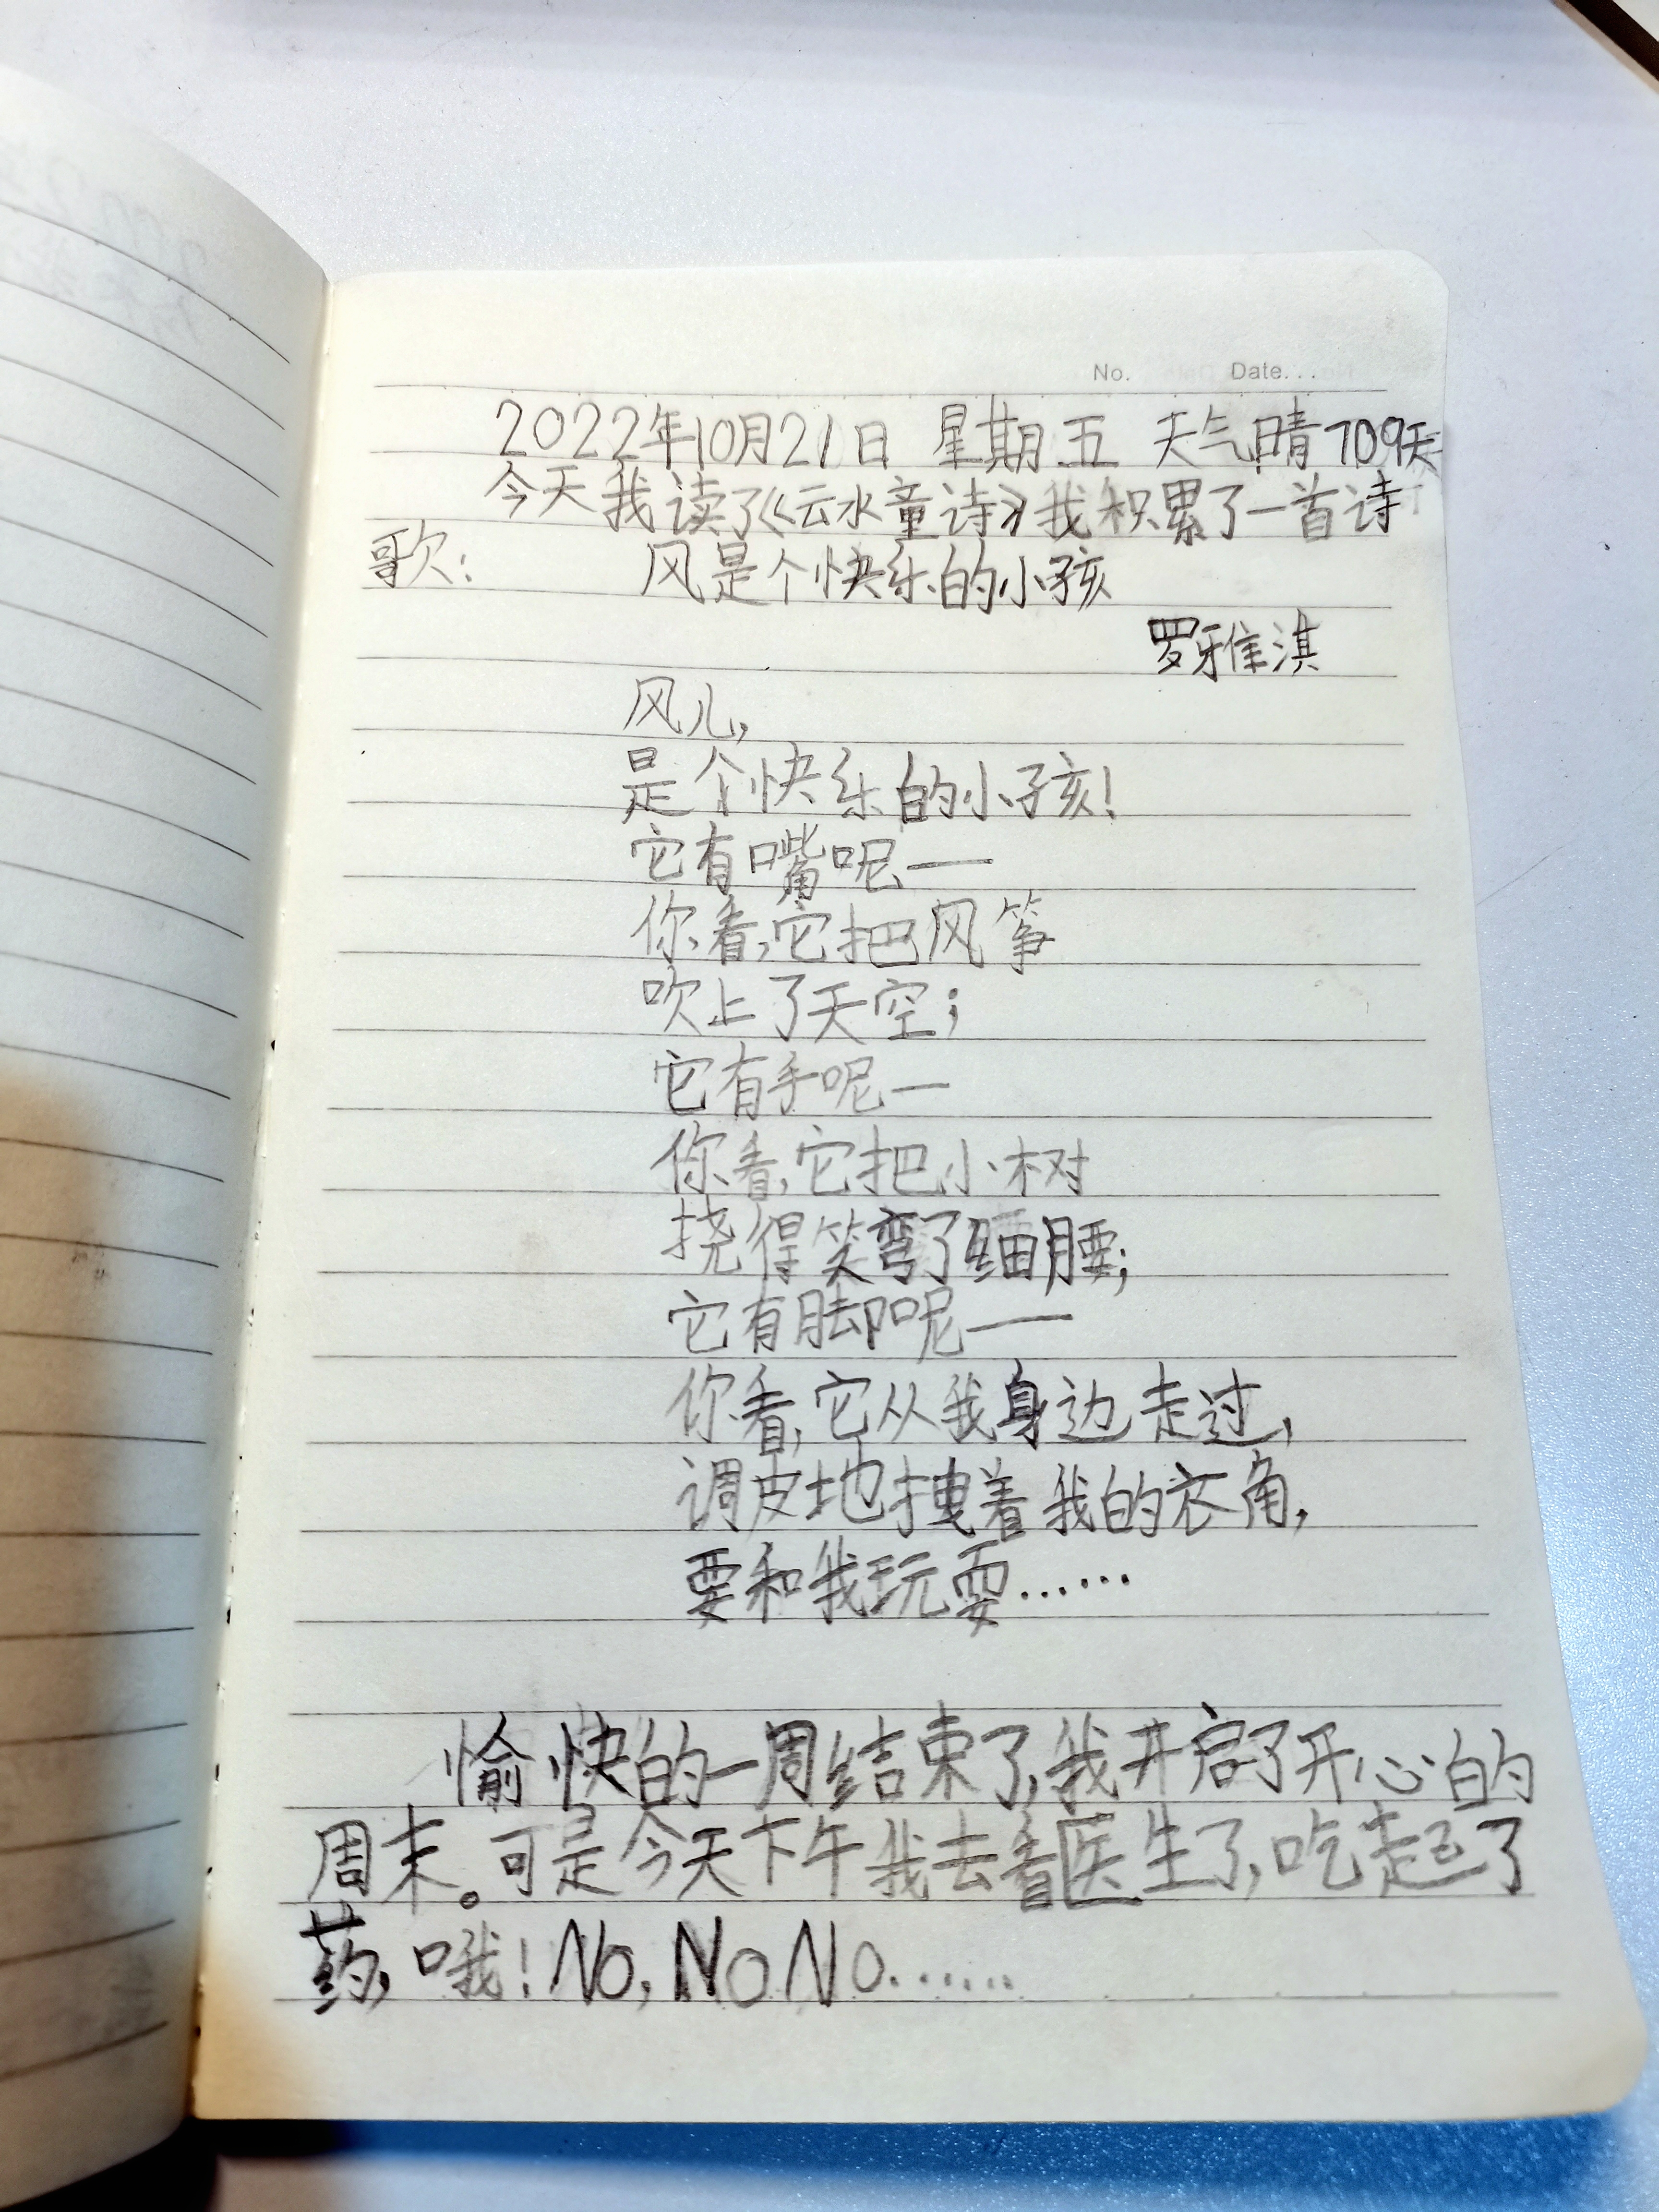 No. Date...
2022年10月21日 星期五 天气晴 709天
今天我读了《云水童诗》我积累了一首诗
歌: 风是个快乐的小孩
罗雅淇
风儿,
是个快乐的小孩!
它有嘴呢——
你看,它把风筝
吹上了天空;
它有手呢—
你看,它把小树
挠得笑弯了细腰;
它有脚呢——
你看,它从我身边走过,
调皮地拽着我的衣角,
要和我玩耍……
愉快的一周结束了,我开启了开心的
周末。可是今天下午我去看医生了,吃起了
药,哦!No,No No……